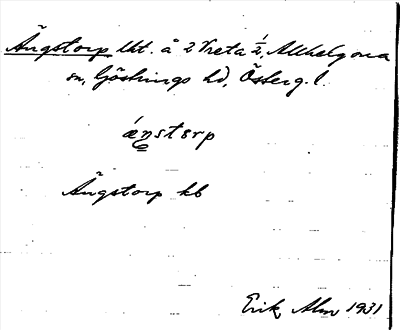 Ängstorp lht. å 2 Vreta ½, Allhelgona
sn, Göstrings hd, Österg. l.
ä́ŋstərp
Ängstorp kb
Erik Alm 1931